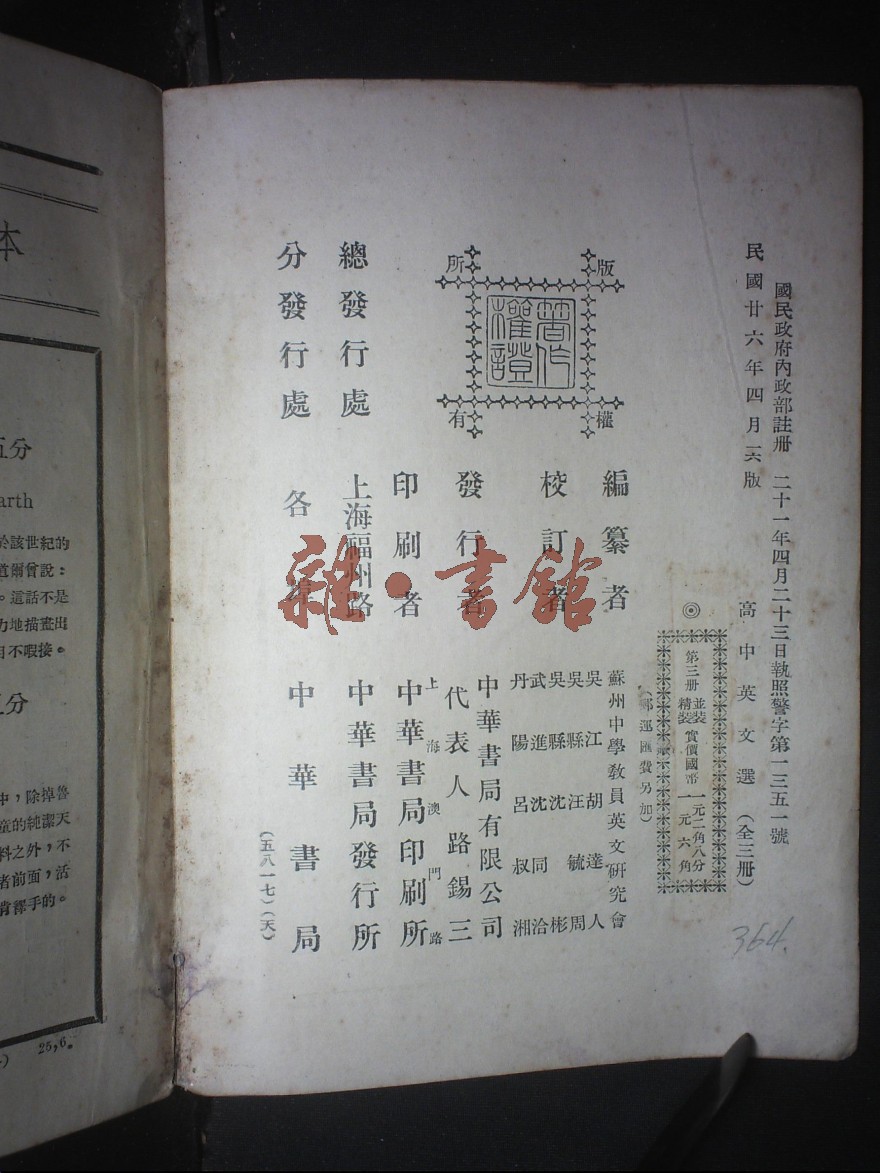 國民政府內政部註册 二十一年四月二十三日執照警字第一三五一號
民國廿六年四月六版
高中英文選(全三册)
◎
第三册 並裝 精裝 實價國幣 一元二角八分 一元六角
(郵運匯費另加)
版權所有
著作權證
編纂者 蘇州中學教員英文研究會
校訂者
吳江胡達人
吳縣汪毓周
吳縣沈彬
武進沈同洽
丹陽呂叔湘
發行者 中華書局有限公司
代表人 路錫三
印刷者 上海澳門路
中華書局印刷所
總發行處 上海福州路 中華書局發行所
分發行處 各埠 中華書局
(五八一七)(天)
雜·書館
364.
本
五分
arth
於該世紀的
道爾曾說:
。這話不是
力地描畫出
目不暇接。
五分
中,除掉兽
童的純潔天
料之外,不
者前面,活
肯釋手的。
25,6.